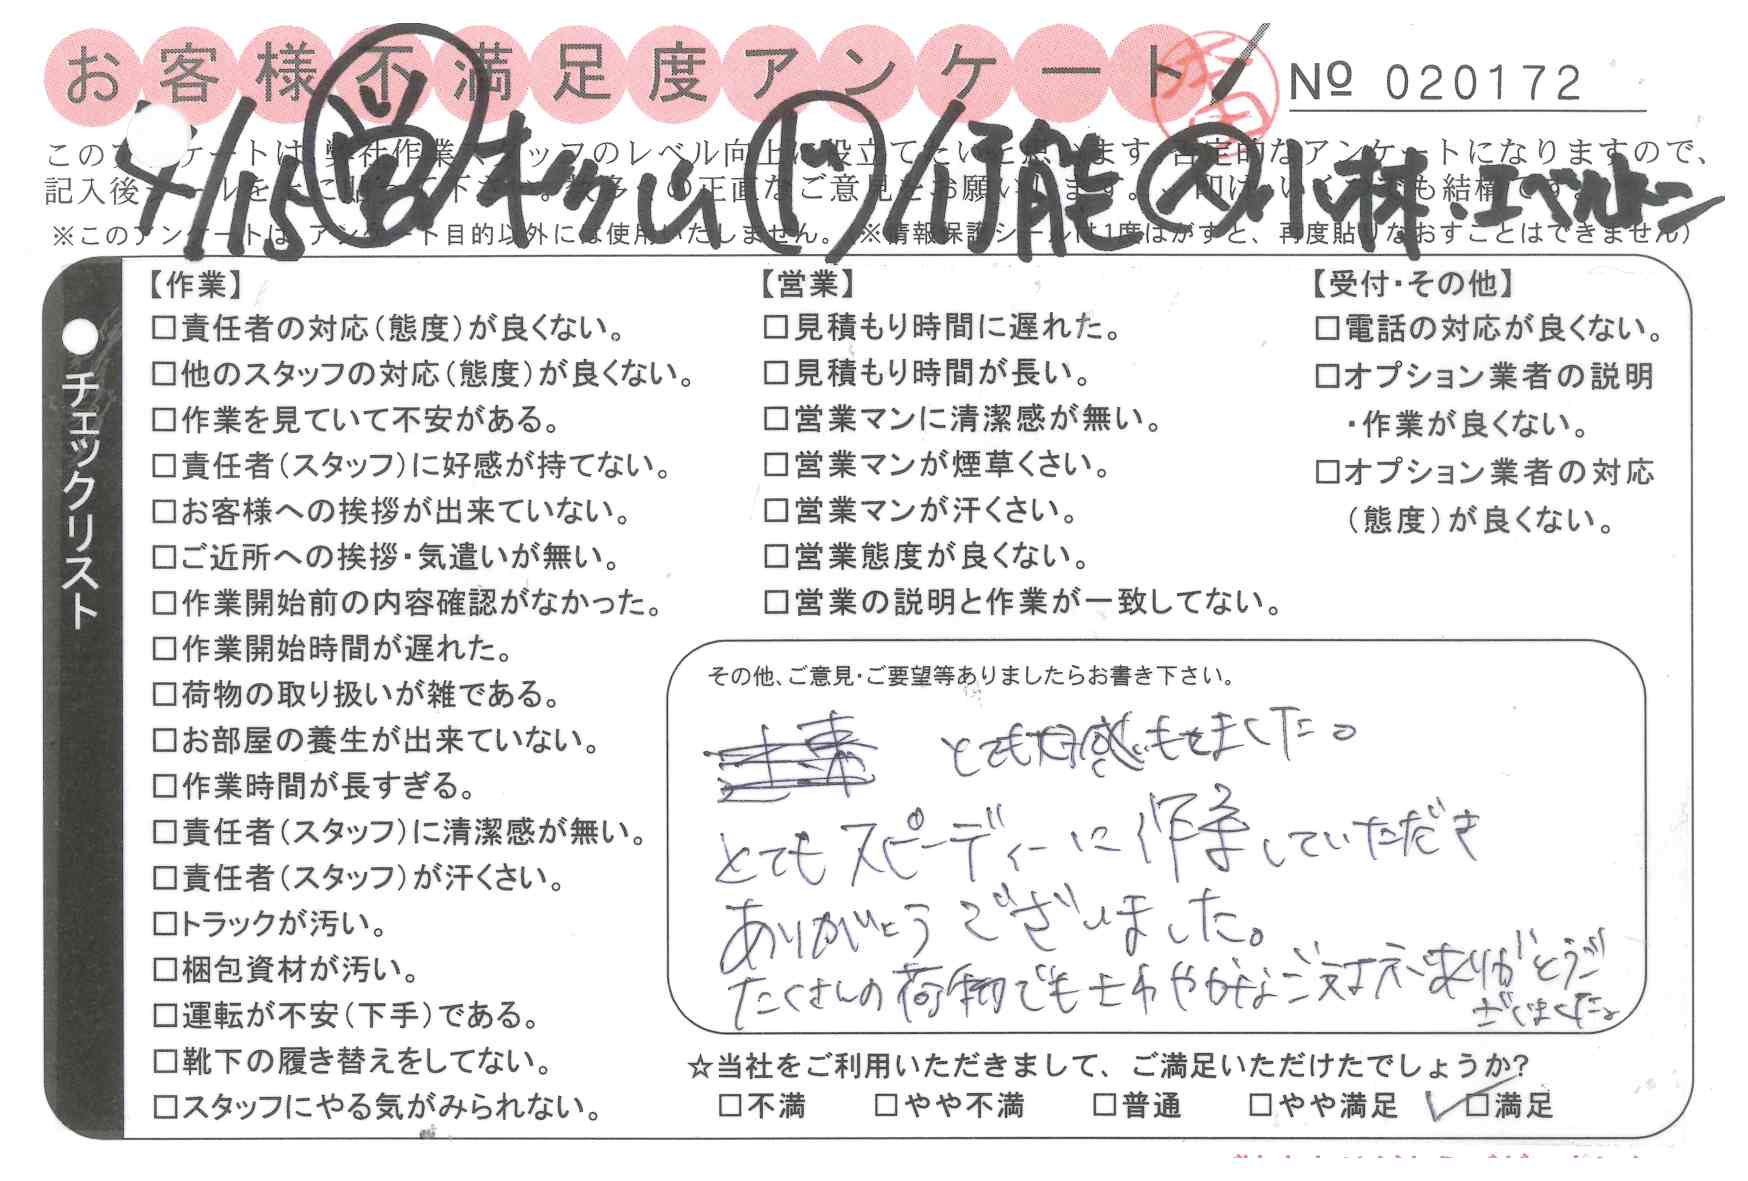 お客様不満足度アンケート
№ 020172
4/15 営 キクリ ド 行能 ス 小林・エベルトン
このアンケートは、弊社作業スタッフのレベル向上に役立てたいと思います。否定的なアンケートになりますので、
※このアンケートは、アンケート目的以外には使用いたしません。(※情報保護シールは1度はがすと、再度貼りなおすことはできません)
チェックリスト
【作業】
□責任者の対応(態度)が良くない。
□他のスタッフの対応(態度)が良くない。
□作業を見ていて不安がある。
□責任者(スタッフ)に好感が持てない。
□お客様への挨拶が出来ていない。
□ご近所への挨拶・気遣いが無い。
□作業開始前の内容確認がなかった。
□作業開始時間が遅れた。
□荷物の取り扱いが雑である。
□お部屋の養生が出来ていない。
□作業時間が長すぎる。
□責任者(スタッフ)に清潔感が無い。
□責任者(スタッフ)が汗くさい。
□トラックが汚い。
□梱包資材が汚い。
□運転が不安(下手)である。
□靴下の履き替えをしてない。
□スタッフにやる気がみられない。
【営業】
□見積もり時間に遅れた。
□見積もり時間が長い。
□営業マンに清潔感が無い。
□営業マンが煙草くさい。
□営業マンが汗くさい。
□営業態度が良くない。
□営業の説明と作業が一致してない。
【受付・その他】
□電話の対応が良くない。
□オプション業者の説明
・作業が良くない。
□オプション業者の対応
(態度)が良くない。
その他、ご意見・ご要望等ありましたらお書き下さい。
とても好感もてました。
とてもスピーディーに作業していただき
ありがとうございました。
たくさんの荷物でもさわやかなご対応ありがとうご
ざいました。
☆当社をご利用いただきまして、ご満足いただけたでしょうか?
□不満 □やや不満 □普通 □やや満足 ✓□満足